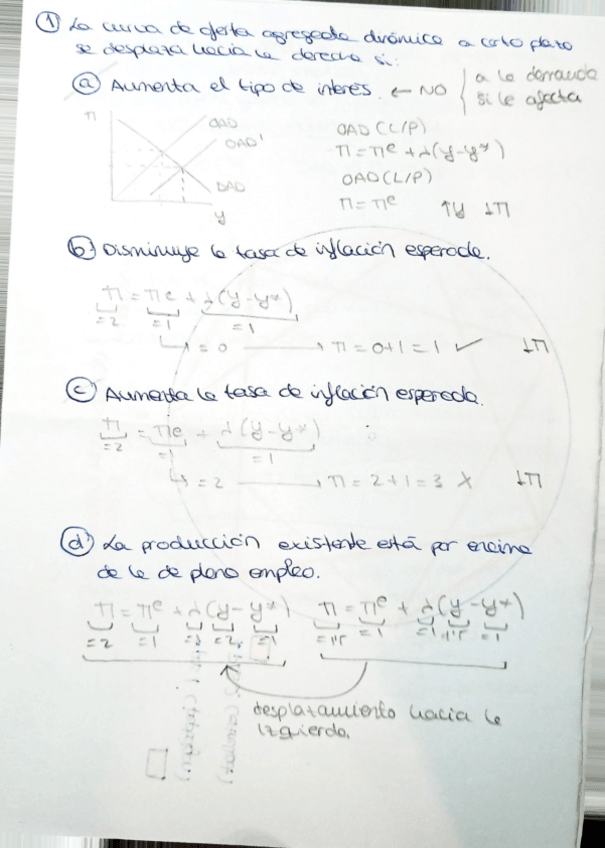 ① La curva de oferta agregada dinámica a corto plazo
se desplaza hacia la derecha si:
ⓐ Aumenta el tipo de interés. ← NO { a la demanda
si le afecta
π
OAD
OAD'
DAD
y
OAD (C/P)
π = πe + λ(y-y*)
OAD (L/P)
π = πe ↑y ↓π
ⓑ Disminuye la tasa de inflación esperada.
π = πe + λ(y-y*)
=2 =1 =1
↳ = 0 → π = 0+1 = 1 ✓ ↓π
ⓒ Aumenta la tasa de inflación esperada.
π = πe + λ(y-y*)
=2 =1 =1
↳ = 2 → π = 2+1 = 3 X ↓π
ⓓ La producción existente está por encima
de la de pleno empleo.
π = πe + λ(y-y*) π = πe + λ(y-y*)
=2 =1 =1 =2 =1 =1 =1 =1
desplazamiento hacia la
izquierda.